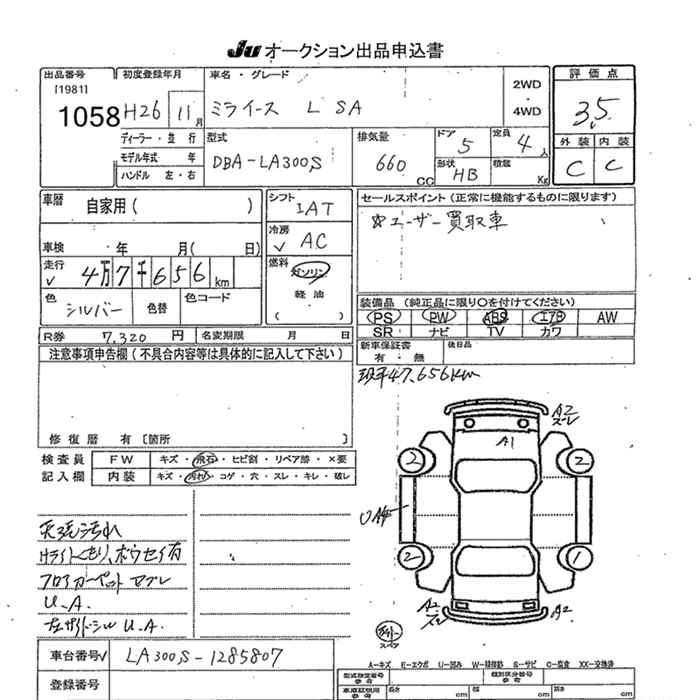 Ju オークション出品申込書
出品番号 初度登録年月 車名・グレード 評価点
[1981]
1058 H26 11月 ミライース L SA 2WD・4WD 3.5
ディーラー・並行 型式 排気量 ドア 定員 外装 内装
モデル年式 年 DBA-LA300S 660cc 5 4人 C C
ハンドル 左・右 形状 HB 積載 Kg
車暦 自家用( ) シフト IAT セールスポイント(正常に機能するものに限ります)
冷房 AC ☆ユーザー買取車
車検 年 月( 日)
走行 4万7千656km 燃料 ガソリン
軽油
( )
色 シルバー 色替 色コード 装備品(純正品に限り○を付けてください)
PS PW ABS エアB AW
R券 7,320円 名変期限 月 日 SR ナビ TV カワ
注意事項申告欄(不具合内容等は具体的に記入して下さい) 新車保証書 有・無 後日品
現車47,656km
修復暦 有[箇所 ]
検査員 FW キズ・飛石・ヒビ割・リペア跡・×要
記入欄 内装 キズ・汚れ・コゲ・穴・スレ・キレ・破レ
A2
A1
2 2
UA
2 1
A2 A2
天張汚れ
Hライトくもり、ボウセイ有
フロアカーペット ヤブレ
U.A.
左サイドシル U.A.
スペア
車台番号 LA300S-1285807
登録番号
A-キズ E-エクボ U-凹み W-補修跡 S-サビ C-腐食 XX-交換済
型式指定番号 参考 類別区分番号 参考
車庫証明用 参考 長さ cm 幅 cm 高さ cm